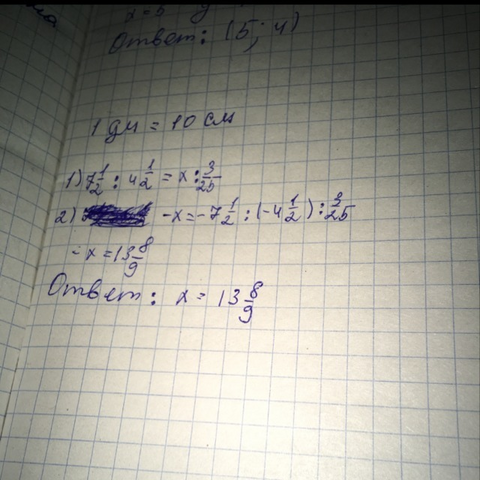 x=5 y
Ответ: (5; 4)
1 дм = 10 см
1) 7 1/2 : 4 1/2 = x : 3/25
2) -x = -7 1/2 : (-4 1/2) : 3/25
-x = 13 8/9
Ответ: x = 13 8/9